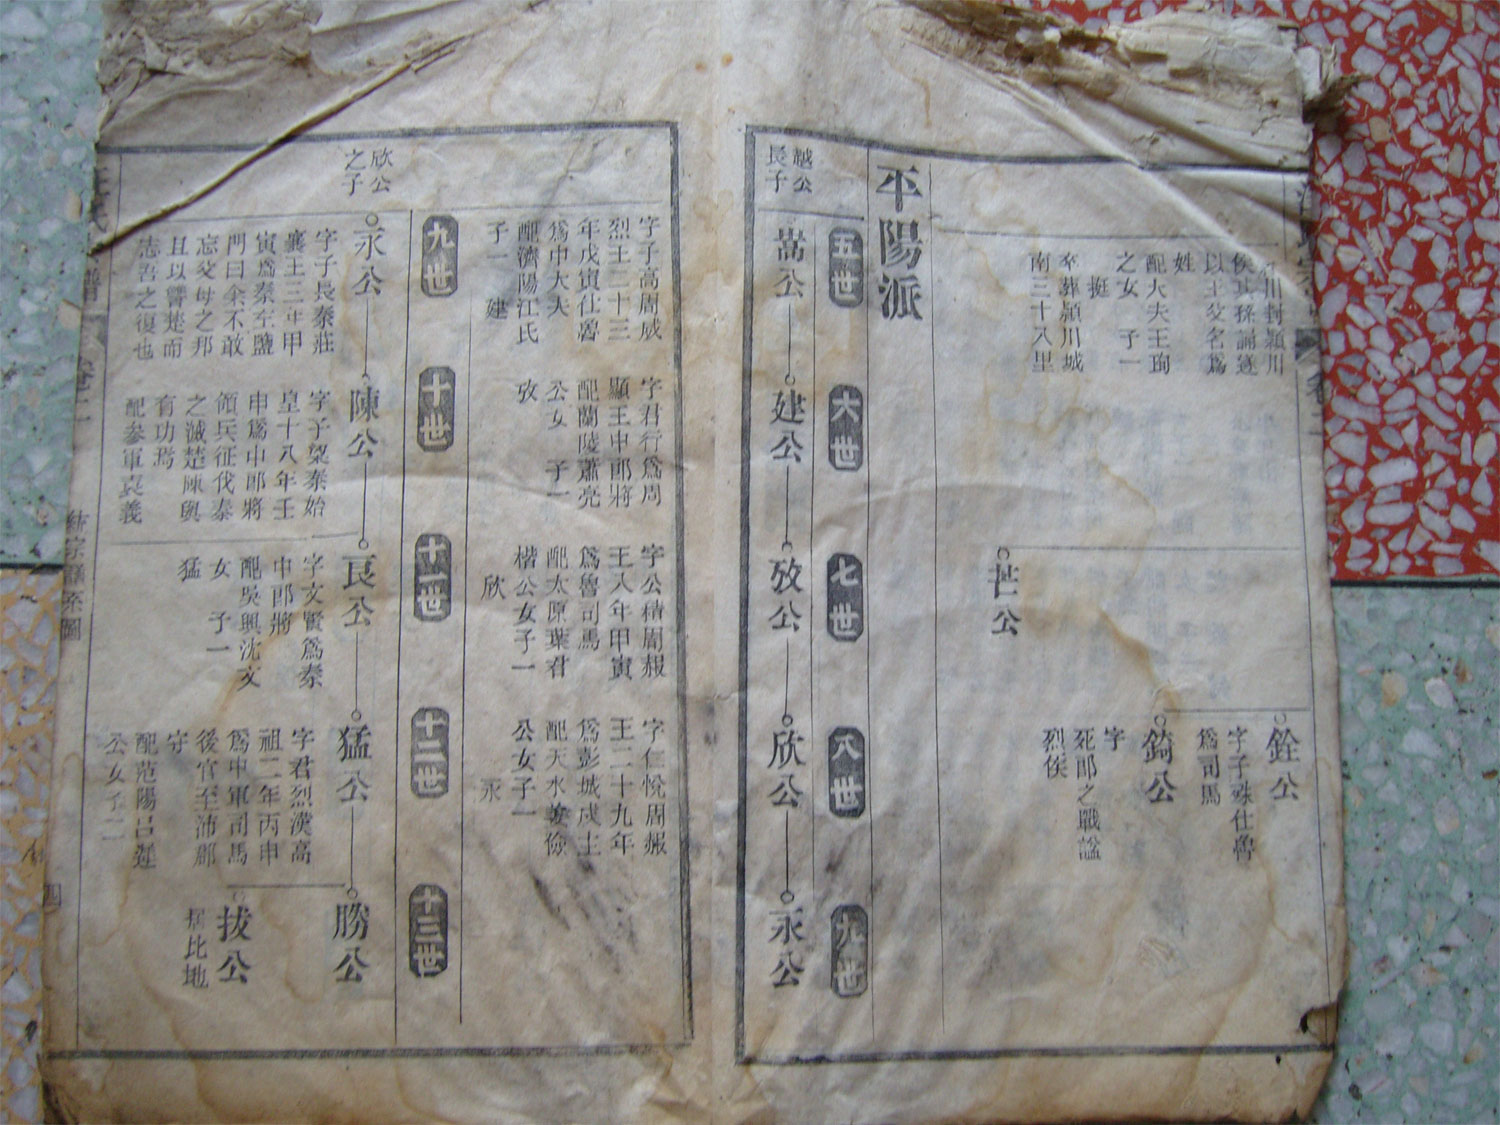 川封潁川
侯其孫誦遂
以王父名爲
姓
配大夫王珣
之女 子一
挺
卒葬潁川城
南三十八里
芒公
銓公
字子殊仕魯
爲司馬
錡公
字
死郎之戰諡
烈侯
平陽派
五世
六世
七世
八世
九世
越公
長子
嵩公
建公
攷公
欣公
永公
字子高周威
烈王二十三
年戊寅仕魯
爲中大夫
配濟陽江氏
子一 建
字君行爲周
顯王中郎將
配蘭陵蕭亮
公女 子一
攷
字公稽周赧
王八年甲寅
爲魯司馬
配太原葉君
楷公女子一
欣
字仁悅周赧
王二十九年
爲彭城戍主
配天水姜儉
公女子一
永
九世
十世
十一世
十二世
十三世
欣公
之子
永公
字子長秦莊
襄王三年甲
寅爲秦至鹽
門曰余不敢
忘父母之邦
且以讐楚而
志吾之復也
陳公
字子槼秦始
皇十八年壬
申爲中郎將
領兵征伐秦
之滅楚陳與
有功焉
配參軍袁義
良公
字文賢爲秦
中郎將
配吳興沈文
女 子一
猛
猛公
字君烈漢高
祖二年丙申
爲中軍司馬
後官至沛郡
守
配范陽呂遲
公女子二
勝公
拔公
居比地
卷二
統宗譜系圖
四